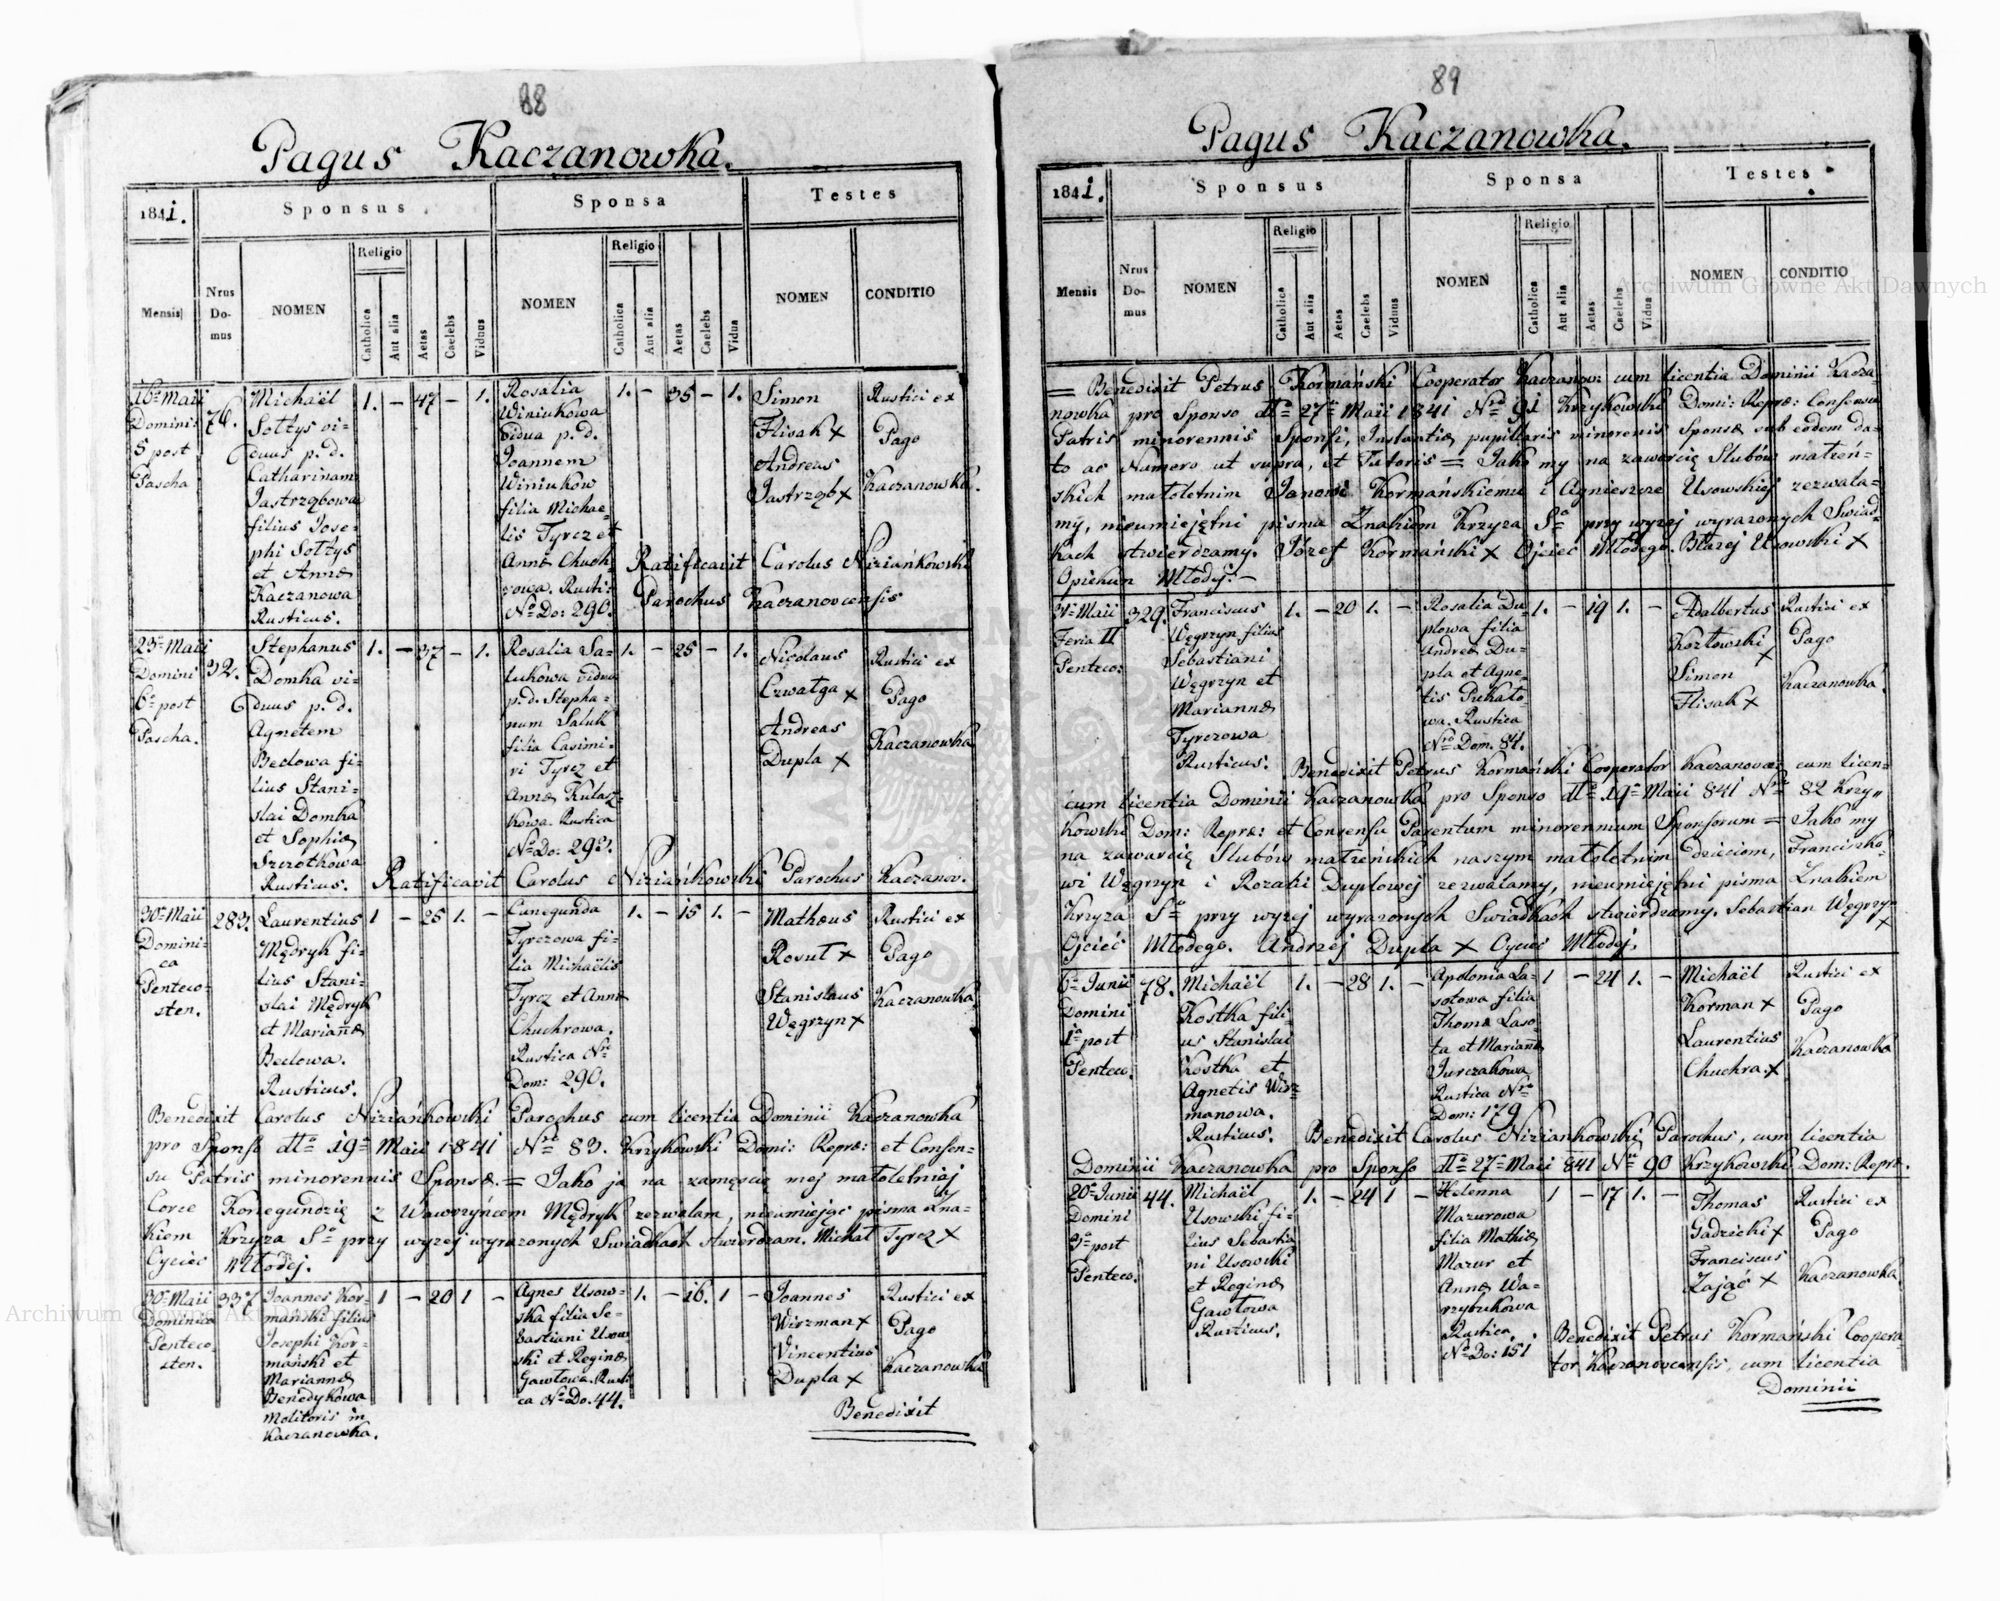 88
Pagus Kaczanowka.
1841.
Sponsus
Sponsa
Testes
Mensis
Nrus Do- mus
NOMEN
Religio
Catholica
Aut alia
Aetas
Caelebs
Viduus
NOMEN
Religio
Catholica
Aut alia
Aetas
Caelebs
Vidua
NOMEN
CONDITIO
16a Maii
Domini:
5 post
Pascha
76.
Michaël
Sołtys vi-
duus p. d.
Catharinam
Jastrzębowa
filius Jose-
phi Sołtys
et Annæ
Kaczanowa
Rusticus.
1. - 47 - 1.
Rosalia
Winiukowa
vidua p. d.
Joannem
Winiuków
filia Michae-
lis Tyrcz et
Annæ Chuch-
rowa. Rusti:
No Do: 290.
1. - 35 - 1.
Simon
Flisak x
Andreas
Jastrząb x
Rustici ex
Pago
Kaczanowka.
Ratificavit Carolus Niziańkowski
Parochus Kaczanovcensis
23a Maii
Domini
6a post
Pascha.
32.
Stephanus
Domka vi-
duus p. d.
Agnetem
Beclowa fi-
lius Stani-
slai Domka
et Sophiæ
Szczotkowa
Rusticus.
1. - 37 - 1.
Rosalia Sa-
lukowa vidua
p. d. Stepha-
num Saluk
filia Casimi-
ri Tyrcz et
Annæ Kulasz-
kowa. Rustica
No Do: 293.
1. - 25 - 1.
Nicolaus
Czwałga x
Andreas
Dupla x
Rustici ex
Pago
Kaczanowka
Ratificavit Carolus Niziańkowski Parochus Kaczanov.
30a Maii
Domini-
ca
Penteco-
sten.
283.
Laurentius
Mędryk fi-
lius Stani-
slai Mędryk
et Mariannæ
Beclowa.
Rusticus.
1 - 25 1. -
Cunegunda
Tyrczowa fi-
lia Michaëlis
Tyrcz et Annæ
Chuchrowa.
Rustica Nro
Dom: 290.
1. - 15 1. -
Mathæus
Rosuł x
Stanislaus
Węgrzyn x
Rustici ex
Pago
Kaczanowka
Benedixit Carolus Niziańkowski Parochus cum licentia Dominii Kaczanowka
pro Sponso dto 19a Maii 1841 Nro 83. Krzykowski Domi: Repræ: et Consen-
su Patris minorennis Sponsæ. = Jako ja na zamęście mej małoletniej
Corce Konegundzie z Wawrzyńcem Mędryk zezwalam, nieumiejąc pisma Zna-
kiem Krzyża So przy wyzej wyrazonych Swiadkach stwierdzam. Michał Tyrcz x
Oyciec Młodej.
30a Maii
Dominica
Penteco
sten.
337
Joannes Kor-
mański filius
Josephi Kor-
mański et
Mariannæ
Benedykowa
Molitoris in
Kaczanowka.
1 - 20 1 -
Agnes Usow-
ska filia Se-
bastiani Usow
ski et Reginæ
Gawłowa. Rusti
ca No Do. 44.
1. - 16. 1 -
Joannes
Wirzman x
Vincentius
Dupla x
Rustici ex
Pago
Kaczanowka
Benedixit
89
Pagus Kaczanowka.
1841.
Sponsus
Sponsa
Testes
Mensis
Nrus Do- mus
NOMEN
Religio
Catholica
Aut alia
Aetas
Caelebs
Viduus
NOMEN
Religio
Catholica
Aut alia
Aetas
Caelebs
Vidua
NOMEN
CONDITIO
= Benedixit Petrus Kormański Cooperator Kaczanov: cum licentia Dominii Kacza-
nowka pro Sponso dto 27a Maii 1841 Nro 91 Krzykowski Domi: Repræ: Consensu
Patris minorennis Sponsi, Instantiæ pupillaris minorenis Sponsæ sub eodem da-
to ac Numero ut supra, et Tutoris = Jako my na zawarcię Slubów małżeń-
skich małoletnim Janowi Kormańskiemu i Agnieszce Usowskiej zezwala-
my, nieumiejętni pisma Znakiem Krzyża So przy wyzej wyrazonych Swiad-
kach stwierdzamy. Józef Kormański x Ojciec Młodego. Błazej Usowski x
Opiekun Młodej. -
31a Maii
Feria II
Penteco:
329.
Franciscus
Węgrzyn filius
Sebastiani
Węgrzyn et
Mariannæ
Tyrczowa
Rusticus.
1. - 20 1. -
Rosalia Du-
plowa filia
Andreæ Du-
pla et Agne-
tis Piekało-
wa. Rustica
Nro Dom. 84.
1. - 19 1. -
Adalbertus
Kozłowski
x
Simon
Flisak x
Rustici ex
Pago
Kaczanowka.
Benedixit Petrus Kormański Cooperator Kaczanovcen: cum licen-
cum licentia Dominii Kaczanowka pro Sponso dto 19a Maii 841 Nro 82 Krzy-
kowski Dom: Repræ: et Consensu Parentum minorennium Sponsorum = Jako my
na zawarcię Slubów małżeńskich naszym małoletnim dzieciom, Franciszko-
wi Węgrzyn i Rozalii Duplowej zezwalamy, nieumiejętni pisma Znakiem
Krzyża So przy wyzej wyrazonych Swiadkach stwierdzamy. Sebastian Węgrzyn
x
Ojciec Młodego. Andrzej Dupla x Oyciec Młodej.
6a Junii
Domini
1a post
Penteco.
78.
Michaël
Kostka fili-
us Stanislai
Kostka et
Agnetis Wirz-
manowa.
Rusticus.
1. - 28 1. -
Apolonia La-
sotowa filia
Thoma Laso-
ta et Mariannæ
Jurczakowa
Rustica Nro
Dom: 179
1 - 24 1. -
Michaël
Korman x
Laurentius
Chuchra. x
Rustici ex
Pago
Kaczanowka
Benedixit Carolus Niziańkowski, Parochus, cum licentia
Dominii Kaczanowka pro Sponso dto 27a Maii 841 Nro 90 Krzykowski Dom: Repræ.
20a Junii
Domini
3a post
Penteco.
44.
Michaël
Usowski fi-
lius Sebastia
ni Usowski
et Reginæ
Gawłowa
Rusticus.
1. - 24 1 -
Helenna
Mazurowa
filia Mathiæ
Mazur et
Annæ Wa-
rzybukowa
Rustica
No Do: 151
1 - 17 1. -
Thomas
Gadzicki x
Franciscus
Zając x
Rustici ex
Pago
Kaczanowka
Benedixit Petrus Kormański Coopera-
tor Kaczanovcensis, cum licentia
Dominii
Archiwum Główne Akt Dawnych
Archiwum Główne Akt Dawnych